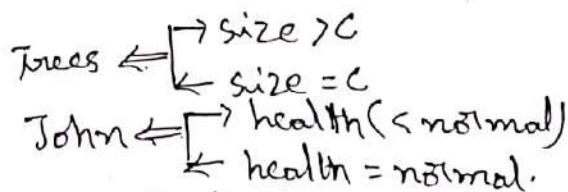 Trees ⇐ → size > C
← size = C
John ⇐ → health (< normal)
← health = normal.